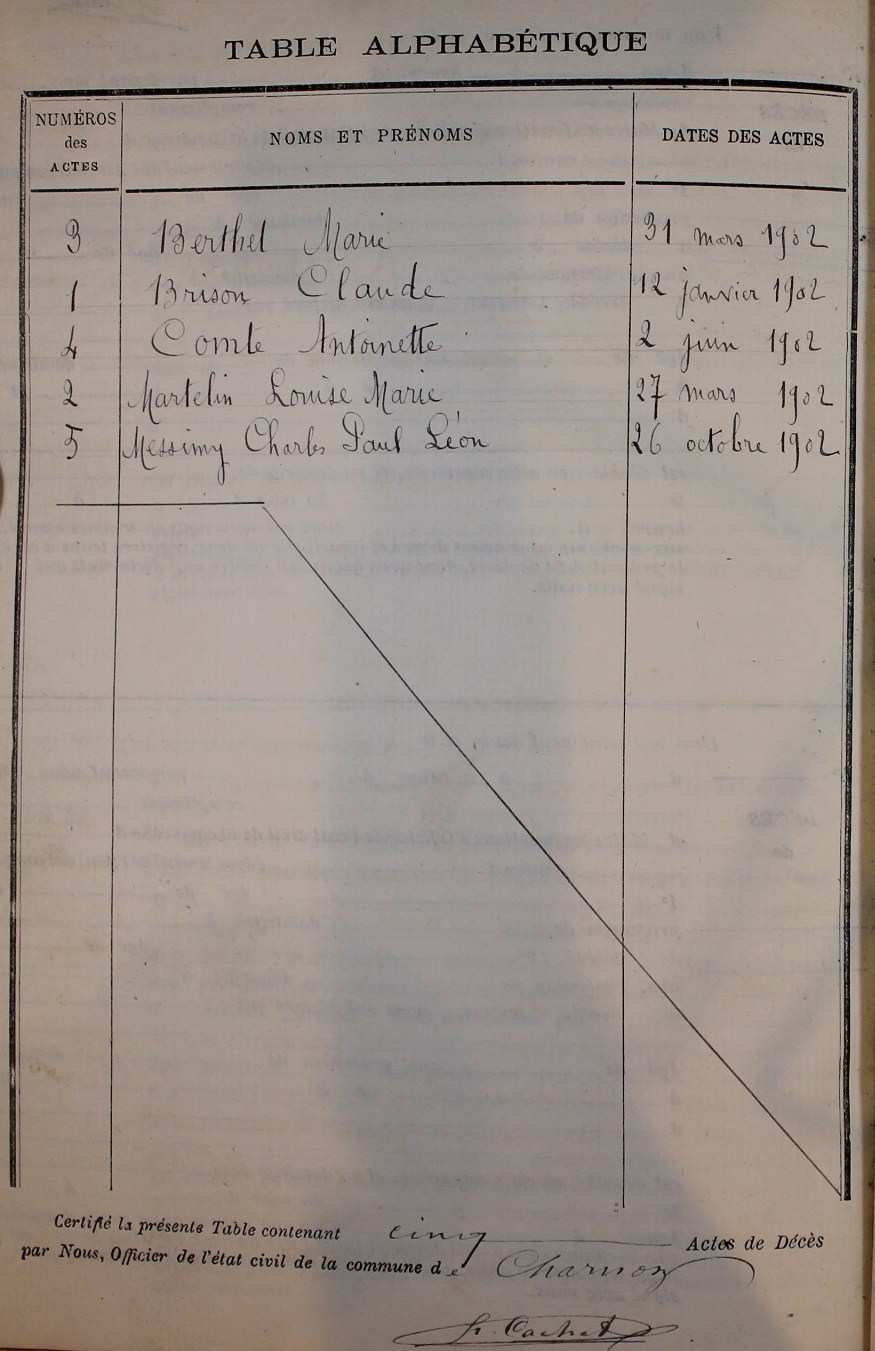 TABLE ALPHABÉTIQUE
NUMÉROS des ACTES NOMS ET PRÉNOMS DATES DES ACTES
3 Berthel Marie 31 mars 1902
1 Brison Claude 12 janvier 1902
4 Comte Antoinette 2 juin 1902
2 Martelin Louise Marie 27 mars 1902
5 Messimy Charles Paul Léon 26 octobre 1902
Certifié la présente Table contenant cinq Actes de Décès
par Nous, Officier de l'état civil de la commune de Charnoz